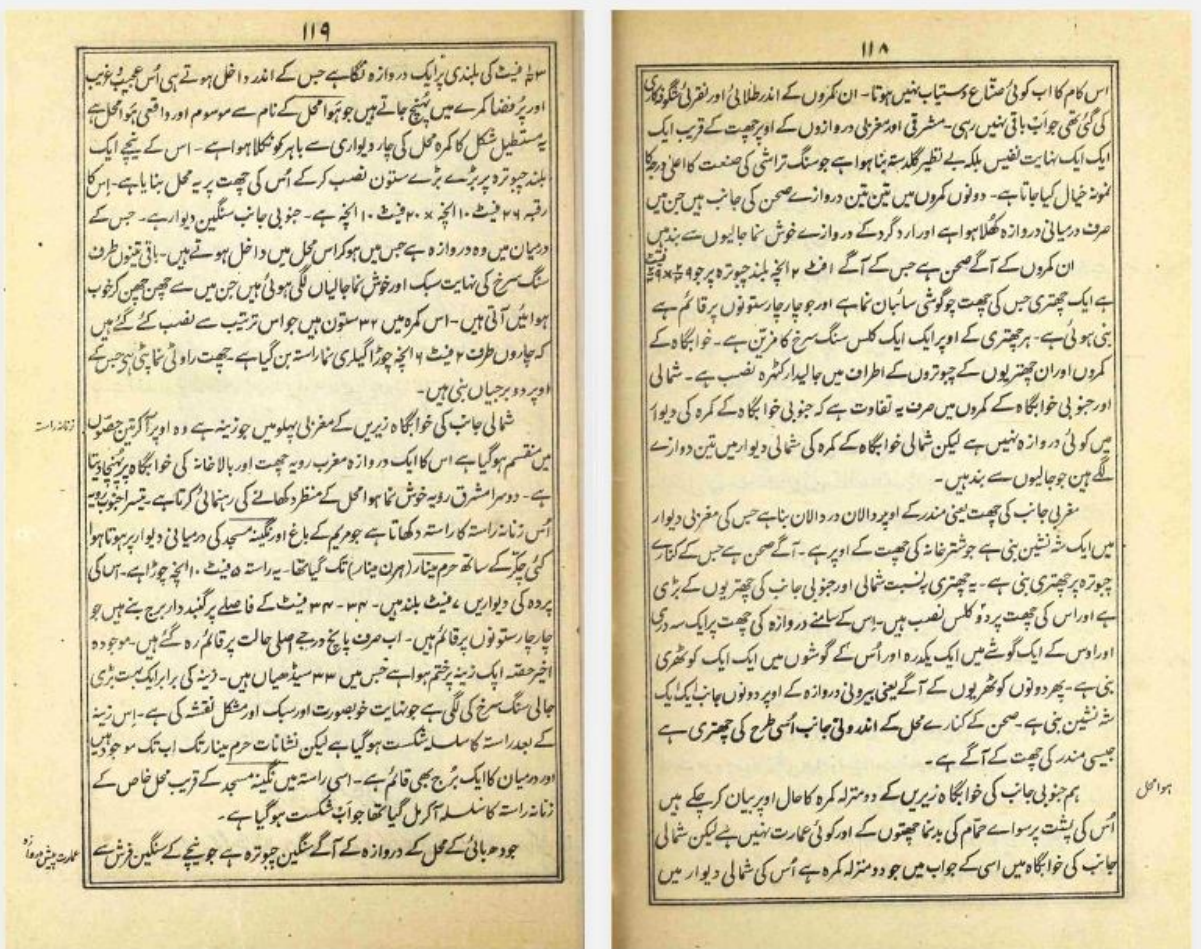 ۱۱۸
اس کام کا اب کوئی صناع دستیاب نہیں ہوتا۔ ان کمروں کے اندر طلائی اور نقرئی
کی گئی تھی جو اب باقی نہیں رہی۔ مشرقی اور مغربی دروازوں کے اوپر چھت کے قریب ایک
ایک ایک نہایت نفیس بلکہ بے نظیر گلدستہ بنا ہوا ہے جو سنگ تراشی کی صنعت کا اعلیٰ درجہ کا
نمونہ خیال کیا جاتا ہے۔ دونوں کمروں میں تین تین دروازے صحن کی جانب ہیں جن میں
صرف درمیانی دروازہ کھلا ہوا ہے اور ارد گرد کے دروازے خوش نما جالیوں سے بند ہیں
ان کمروں کے آگے صحن ہے جس کے آگے ۱ فٹ ۲ انچہ بلند چبوترہ پر جو
ہے ایک چھتری جس کی چھت چوگوشی سائبان نما ہے اور جو چار چار ستونوں پر قائم ہے
بنی ہوئی ہے۔ ہر چھتری کے اوپر ایک ایک کلس سنگ سرخ کا مزین ہے۔ خوابگاہ کے
کمروں اور ان چھتریوں کے چبوتروں کے اطراف میں جالیدار کٹہرہ نصب ہے۔ شمالی
اور جنوبی خوابگاہ کے کمروں میں صرف یہ تفاوت ہے کہ جنوبی خوابگاہ کے کمرہ کی دیوار
میں کوئی دروازہ نہیں ہے لیکن شمالی خوابگاہ کے کمرہ کی شمالی دیوار میں تین دوازے
لگے ہین جو جالیوں سے بند ہیں۔
مغربی جانب کی چھت یعنی مندر کے اوپر دالان در دالان بنا ہے جس کی مغربی دیوار
میں ایک شہ نشین بنی ہے جو شتر خانہ کی چھت کے اوپر ہے۔ آگے صحن ہے جس کے کنارے
چبوترہ پر چھتری بنی ہے۔ یہ چھتری بنسبت شمالی اور جنوبی جانب کی چھتریوں کے بڑی
ہے اور اس کی چھت پر دو کلس نصب ہیں۔ اس کے سامنے دروازہ کی چھت پر ایک سہ دری
اور اوس کے ایک گوشے میں ایک یکدرہ اور اُس کے گوشوں میں ایک ایک کوٹھری
بنی ہے۔ پھر دونوں کوٹھریوں کے آگے یعنی بیرونی دروازہ کے اوپر دونوں جانب ایک ایک
شہ نشین بنی ہے۔ صحن کے کنارے محل کے اندرونی جانب اُسی طرح کی چھتری ہے
جیسی مندر کی چھت کے آگے ہے۔
ہوا محل
ہم جنوبی جانب کی خوابگاہ زیریں کے دو منزلہ کمرہ کا حال اوپر بیان کر چکے ہیں
اُس کی پشت پر سواے حمام کی بدنما چھتوں کے اور کوئی عمارت نہیں ہے لیکن شمالی
جانب کی خوابگاہ میں اسی کے جواب میں جو دو منزلہ کمرہ ہے اُس کی شمالی دیوار میں
۱۱۹
فیٹ کی بلندی پر ایک دروازہ لگا ہے جس کے اندر داخل ہوتے ہی اُس عجیب و غریب
اور پُر فضا کمرے میں پہنچ جاتے ہیں جو ہوا محل کے نام سے موسوم اور واقعی ہوا محل ہے
یہ مستطیل شکل کا کمرہ محل کی چار دیواری سے باہر کو نکلا ہوا ہے۔ اس کے نیچے ایک
بلند چبوترہ پر بڑے بڑے ستون نصب کر کے اُس کی چھت پر یہ محل بنایا ہے۔ اِس کا
رقبہ ۲۶ فیٹ ۱۰ انچہ × ۲۰ فیٹ ۱۰ انچہ ہے۔ جنوبی جانب سنگین دیوار ہے۔ جس کے
درمیان میں وہ دروازہ ہے جس میں ہو کر اس محل میں داخل ہوتے ہیں۔ باقی تینوں طرف
سنگ سرخ کی نہایت سبک اور خوش نما جالیاں لگی ہوئی ہیں جن میں سے چھن چھن کر خوب
ہوائیں آتی ہیں۔ اس کمرہ میں ۳۲ ستون ہیں جو اس ترتیب سے نصب کئے گئے ہیں
کہ چاروں طرف ۲ فیٹ ۶ انچہ چوڑا گیلری نما راستہ بن گیا ہے۔ چھت راوٹی نما پٹی ہے جس کے
اوپر دو برجیاں بنی ہیں۔
زنانہ راستہ
شمالی جانب کی خوابگاہ زیریں کے مغربی پہلو میں جو زینہ ہے وہ اوپر آ کر تین حصوں
میں منقسم ہو گیا ہے اس کا ایک دروازہ مغرب رویہ چھت اور بالا خانہ کی خوابگاہ پر پہنچا دیتا
ہے۔ دوسرا مشرق رویہ خوش نما ہوا محل کے منظر دکھانے کی رہنمائی کرتا ہے۔ تیسرا جنوب رویہ
اُس زنانہ راستہ کا راستہ دکھاتا ہے جو مریم کے باغ اور نگینہ مسجد کی درمیانی دیوار پر ہوتا ہوا
کئی چکر کے ساتھ حرم مینار (ہرن مینار) تک گیا تھا۔ یہ راستہ ۵ فیٹ ۱۰ انچہ چوڑا ہے۔ اس کی
پردہ کی دیواریں ۷ فیٹ بلند ہیں۔ ۳۴۔ ۳۴ فیٹ کے فاصلے پر گنبد دار برج بنے ہیں جو
چار چار ستونوں پر قائم ہیں۔ اب صرف پانچ درجے اصلی حالت پر قائم رہ گئے ہیں۔ موجودہ
اخیر حصہ ایک زینہ پر ختم ہوا ہے جس میں ۳۳ سیڑھیاں ہیں۔ زینہ کی برابر ایک بہت بڑی
جالی سنگ سرخ کی لگی ہے جو نہایت خوبصورت اور سبک اور مشکل نقشہ کی ہے۔ اِس زینہ
کے بعد راستہ کا سلسلہ شکست ہو گیا ہے لیکن نشانات حرم مینار تک اب تک موجود ہیں
اور درمیان کا ایک برج بھی قائم ہے۔ اسی راستہ میں نگینہ مسجد کے قریب محل خاص کے
زنانہ راستہ کا سلسلہ آ کر مل گیا تھا جو اب شکست ہو گیا ہے۔
عمارت پیش دروازہ
جودھ بائی کے محل کے دروازہ کے آگے سنگین چبوترہ ہے جو نیچے کے سنگین فرش سے